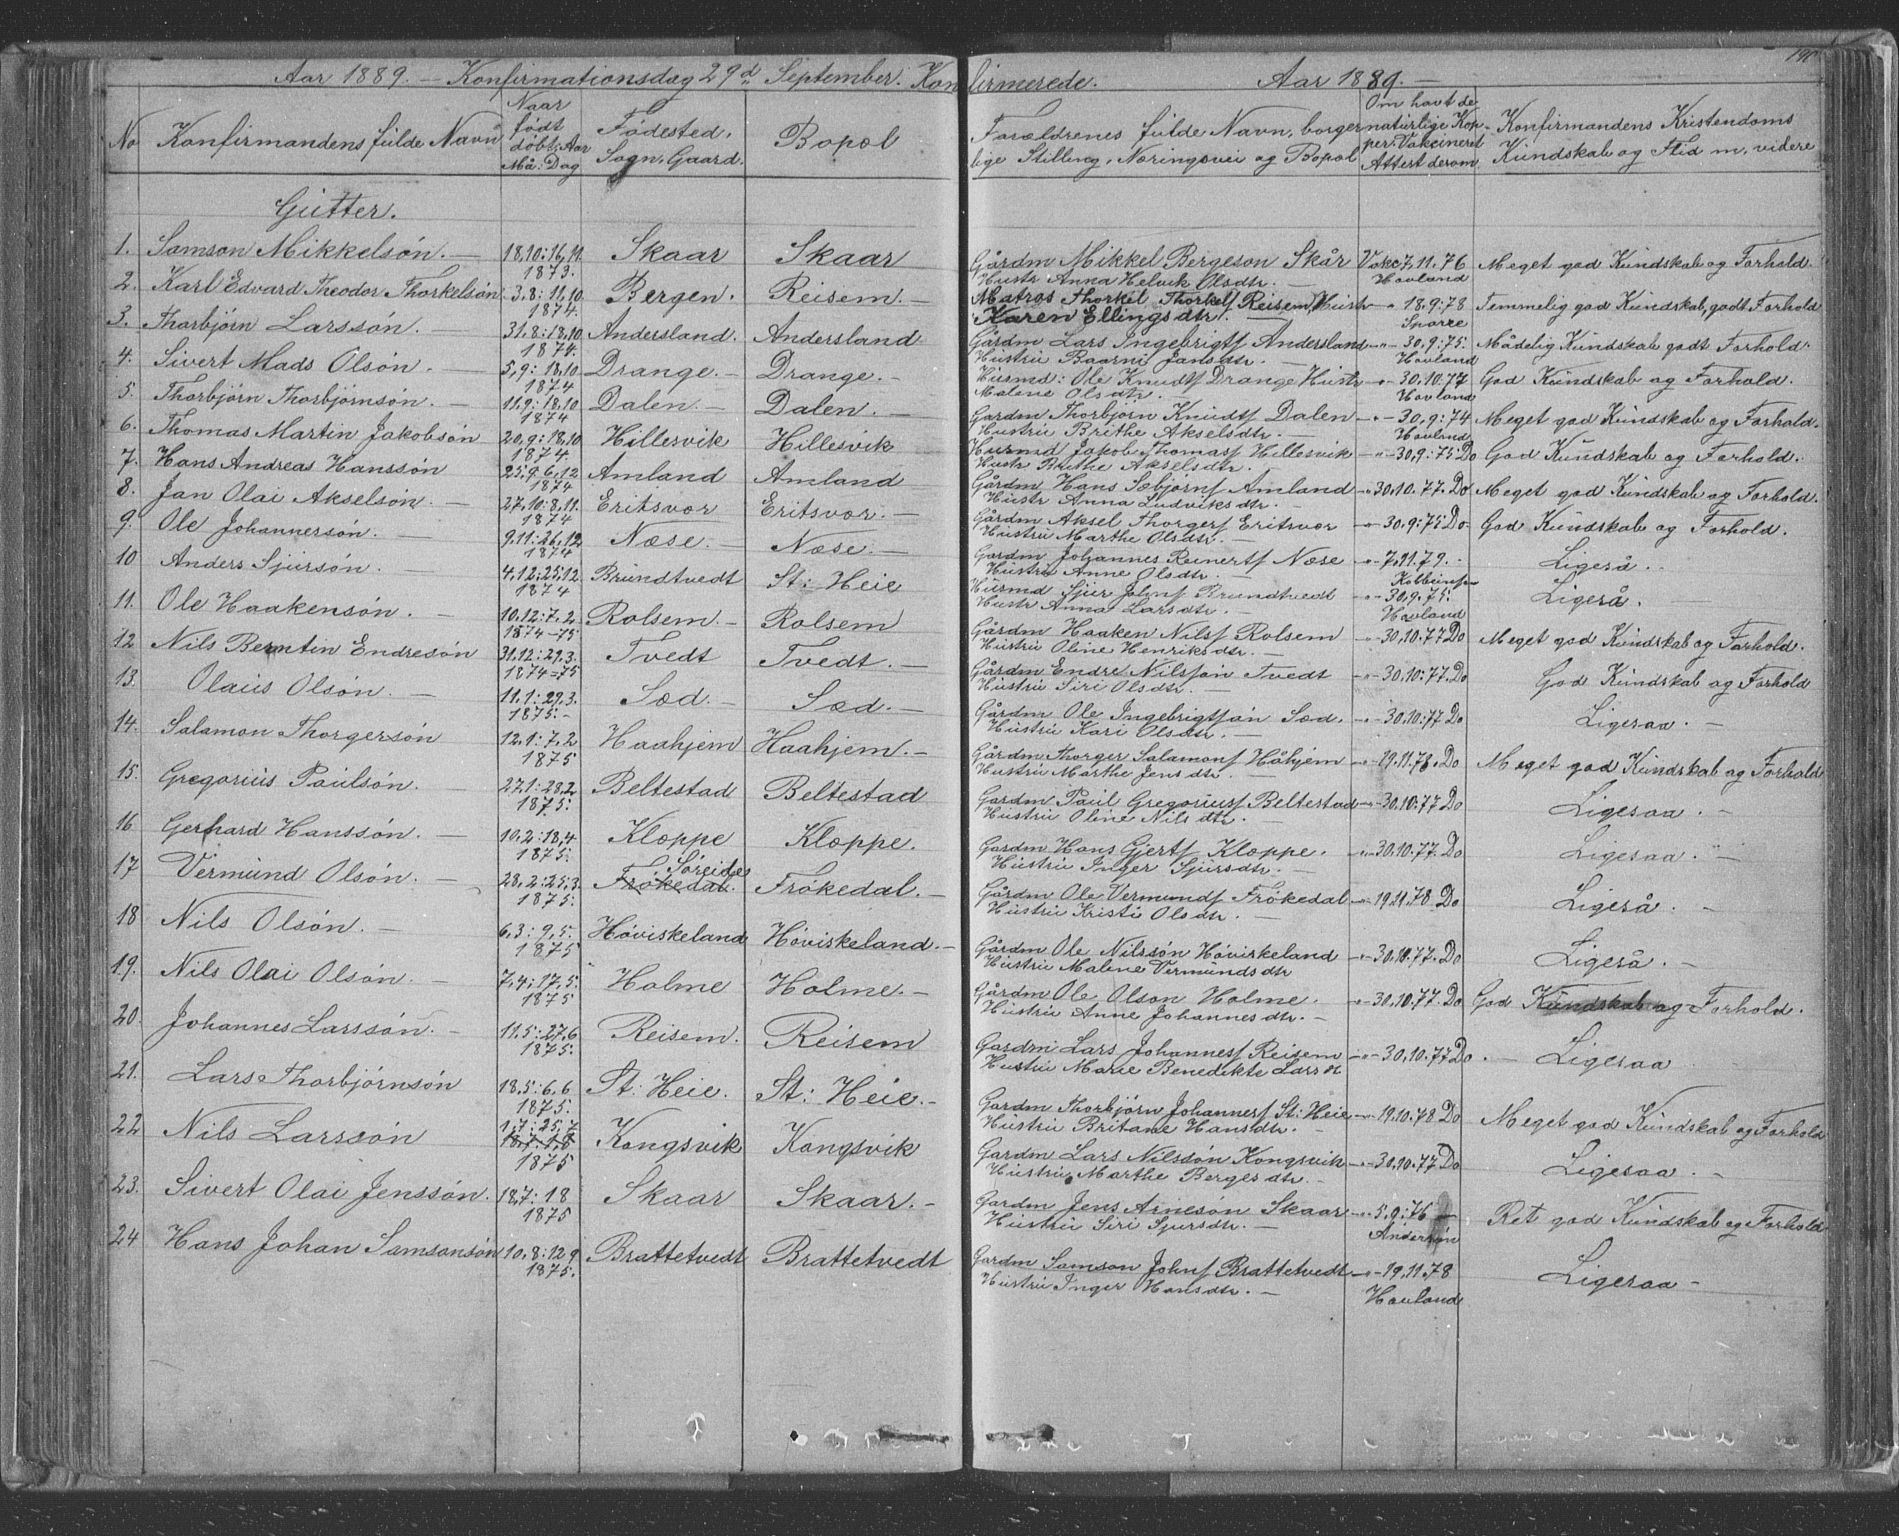 Aar 1889. — Konfirmationsdag 29d September. Konfirmerede. Aar 1889. —
No
Konfirmandens fulde Navn
Naar født døbt, Aar Må: Dag
Fødested, Sogn, Gaard.
Bopæl
Forældrenes fulde Navn, borgerlige Stilling, Næringsvei og Bopæl
Om havt de naturlige Kopper. Vakcineret Attest derom.
Konfirmandens Kristendoms Kundskab og Flid m. videre
Gutter.
1. Samson Mikkelsón. — 18,10: 16,11. 1873. Skaar Skaar Gårdm Mikkel Bergeson Skår Vakc 7,11.76
Hustr Anna Helvik Olsdtr. Hovland Meget god Kundskab og Forhold
2. Karl Edvard Theodor Thorkelsón 3.8: 11,10. 1874. Bergen. Reisem. — Matros Thorkil Thorkelſ Reisem, Hustr -"- 18.9:78
Karen Ellingsdtr. Temmelig god Kundskab, godt Forhold
3. Thorbjørn Larssón. — 31.8: 18,10 1874. Andersland. Andersland Gårdm Lars Ingebrigtſ Andersland -"- 30.9:75.
Hustru Baarni Jansdtr. — Hovland Mådelig Kundskab godt Forhold.
4. Sivert Mads Olsón. — 5.9: 18,10. 1874 Drange. — Drange. — Husmd: Ole Knudſ Drange Hustr -"- 30.10:77
Malene Olsdtr. Hovland God Kundskab og Forhold.
5. Thorbjörn Thorbjörnsón. — 11.9: 18,10 1874 Dalen. — Dalen. — Gardm Thorbjörn Knudſ Dalen -"- 30.9:74
Hustru Brithe Akselsdtr. — Hovland Meget god Kundskab og Forhold.
6. Thomas Martin Jakobsón 20.9: 18,10 1874. Hillesvik Hillesvik Husmd Jakob Thomasſ Hillesvik -"- 30.9:75 Do
Hustr Brithe Akselsdtr. God Kundskab og Forhold.
7. Hans Andreas Hanssón 25.9. 6,12 1874 Amland Amland Gårdm Hans Sæbjörnſ Amland -"- 30.10.77. Do
Hustr Anna Ludviksdtr. Meget god Kundskab og Forhold.
8. Jan Olai Akselsón. — 27,10: 8,11. 1874 Eritsvor Eritsvor. — Gårdm Aksel Thorgerſ Eritsvor -"- 30.9:75 Do
Hustru Marthe Olsdtr. God Kundskab og Forhold.
9. Ole Johannersón. — 9.11: 26,12 1874 Næse. — Næse. — Gardm Johannes Reinertſ Næse -"- 7.11.79.
Hustru Anne Olsdtr. — Ligeså.
10 Anders Sjursón. — 4.12: 25,12. 1874 Brundtvedt St: Heie Husmd Sjur Johnſ Brundtvedt -"- 30.9.75.
Hustr Anna Larsdtr. — Hovland Ligeså.
11. Ole Haakensón. — 10.12: 7.2. 1874-75 Rolsem. — Rolsem Gårdm Haaken Nilsſ Rolsem -"- 30.10:77 Do
Hustru Oline Henriksdtr. Meget god Kundskab og Forhold.
12 Nils Berntin Endresón 31.12: 29.3. 1874-75 Tvedt Tvedt. — Gårdm Endre Nilsſon Tvedt -"- 30.10:77. Do
Hustru Siri Olsdtr. — God Kundskab og Forhold
13. Olaus Olsón. — 11.1: 29.3. 1875. Sæd. — Sæd. — Gårdm Ole Ingebrigtſón Sæd. -"- 30.10:77 Do
Hustru Kari Olsdtr. — Ligesaa. —
14. Salamon Thorgersón 12.1: 7.2 1875 Haahjem Haahjem. — Gårdm Thorger Salamonſ Håhjem -"- 19.11.78. Do
Hustru Marthe Jensdtr. — Meget god Kundskab og Forhold
15. Gregorius Paulsón. — 27.1: 28.2. 1875. Beltestad Beltestad Gardm Paul Gregoriusſ Beltestad -"- 30.10:77 Do
Hustru Oline Nilsdtr. — Ligesaa. —
16. Gerhard Hanssón. — 10.2: 18.4 1875. Klæppe Klæppe. Gardm Hans Gjertſ Klæppe. -"- 30.10:77. Do
Hustru Inger Sjursdtr. — Ligesaa. —
17 Vermund Olsón. — 28.2: 25.3. 1875. Söreide Frökedal. Frökedal. — Gårdm Ole Vermundſ Frökedal -"- 19.11.78. Do
Hustru Kristi Olsdtr. — Ligeså. —
18. Nils Olsón. — 6.3: 9.5. 1875 Höviskeland Höviskeland. — Gårdm Ole Nilssón Höviskeland -"- 30.10.77. Do
Hustru Malene Vermundsdtr Ligeså. —
19. Nils Olai Olsón. — 7.4: 17.5. 1875 Holme Holme. — Gårdm Ole Olson Holme. -"- 30.10.77. Do
Hustru Anne Johannesdtr. — God Kundskab og Forhold.
20. Johannes Larssón. — 11.5: 27.6 1875. Reisem. Reisem Gardm Lars Johannesſ Reisem -"- 30.10:77 Do
Hustru Marie Benedikte Lars dt Ligesaa
21. Lars Thorbjörnsón 18.5: 6.6 1875. St: Heie. St: Heie. — Gardm Thorbjörn Johannesſ St: Heie -"- 19.10:78 Do
Hustru Britane Hansdtr. — Meget god Kundskab og Forhold
22 Nils Larssón 1.7: 25.7 18.7: 18 1875 Kongsvik Kongsvik Gardm Lars Nilssón Kongsvik -"- 30.10.77. Do
Hustru Marthe Bergersdtr. — Ligesaa. —
23. Sivert Olai Jenssón. 18.7: 18 1875 Skaar Skaar. — Gardm Jens Arnesón Skaar -"- 5.9:76
Hustru Siri Sjursdtr. — Anderssón Ret god Kundskab og Forhold
24 Hans Johan Samsonsón 10.8: 12.9 1875. Brattetvedt Brattetvedt Gardm Samson Johnſ Brattetvedt -"- 19.11.78
Hustru Inger Hansdtr. — Hovland Ligesaa —